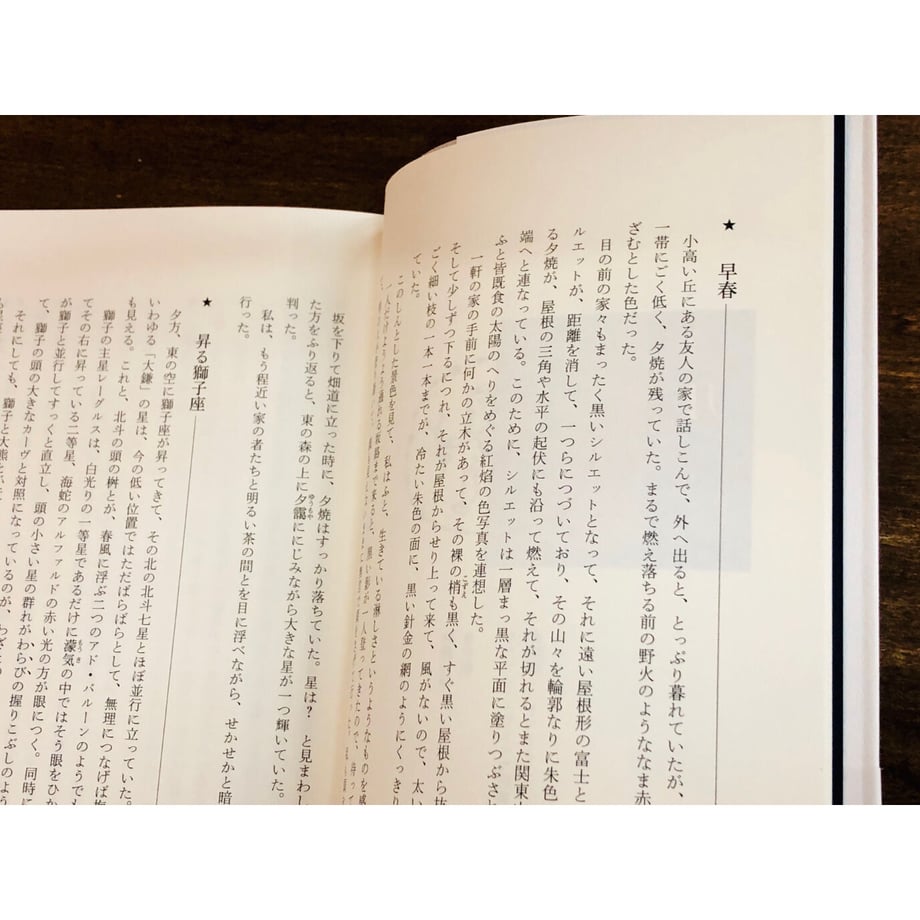 ★ 早春
小高い丘にある友人の家で話しこんで、外へ出ると、とっぷり暮れていたが、
一帯にごく低く、夕焼が残っていた。まるで燃え落ちる前の野火のようななま赤
ざむとした色だった。
目の前の家々もまったく黒いシルエットとなって、それに遠い屋根形の富士と
ルエットが、距離を消して、一つらにつづいており、その山々を輪郭なりに朱色
る夕焼が、屋根の三角や水平の起伏にも沿って燃えて、それが切れるとまた関東
端へと連なっている。このために、シルエットは一層まっ黒な平面に塗りつぶさ
ふと皆既食の太陽のへりをめぐる紅焰の色写真を連想した。
一軒の家の手前に何かの立木があって、その裸の梢も黒く、すぐ黒い屋根から
そして少しずつ下るにつれ、それが屋根からせり上って来て、風がないので、太い
ごく細い枝の一本一本までが、冷たい朱色の面に、黒い針金の網のようにくっきり
ていた。
このしんとした景色を見て、私はふと、生きている淋しさというようなものを感
坂を下りて畑道に立った時に、夕焼はすっかり落ちていた。星は? と見まわし
た方をふり返ると、東の森の上に夕靄ににじみながら大きな星が一つ輝いていた。
判った。
私は、もう程近い家の者たちと明るい茶の間とを目に浮べながら、せかせかと暗
行った。
★ 昇る獅子座
夕方、東の空に獅子座が昇ってきて、その北の北斗七星とほぼ並行に立っていた。
いわゆる「大鎌」の星は、今の低い位置ではただばらばらとして、無理につなげば
も見える。これと、北斗の頭の桝とが、春風に浮ぶ二つのアド・バルーンのようでも
獅子の主星レーグルスは、白光りの一等星であるだけに濛気の中ではそう眼をひか
てその右に昇っている二等星、海蛇のアルファルドの赤い光の方が眼につく。同時に
が獅子と並行してすっくと直立し、頭の小さい星の群れがわらびの握りこぶしのよう
て、獅子の頭の大きなカーヴと対照になっているのが、
それにしても、獅子と大熊と